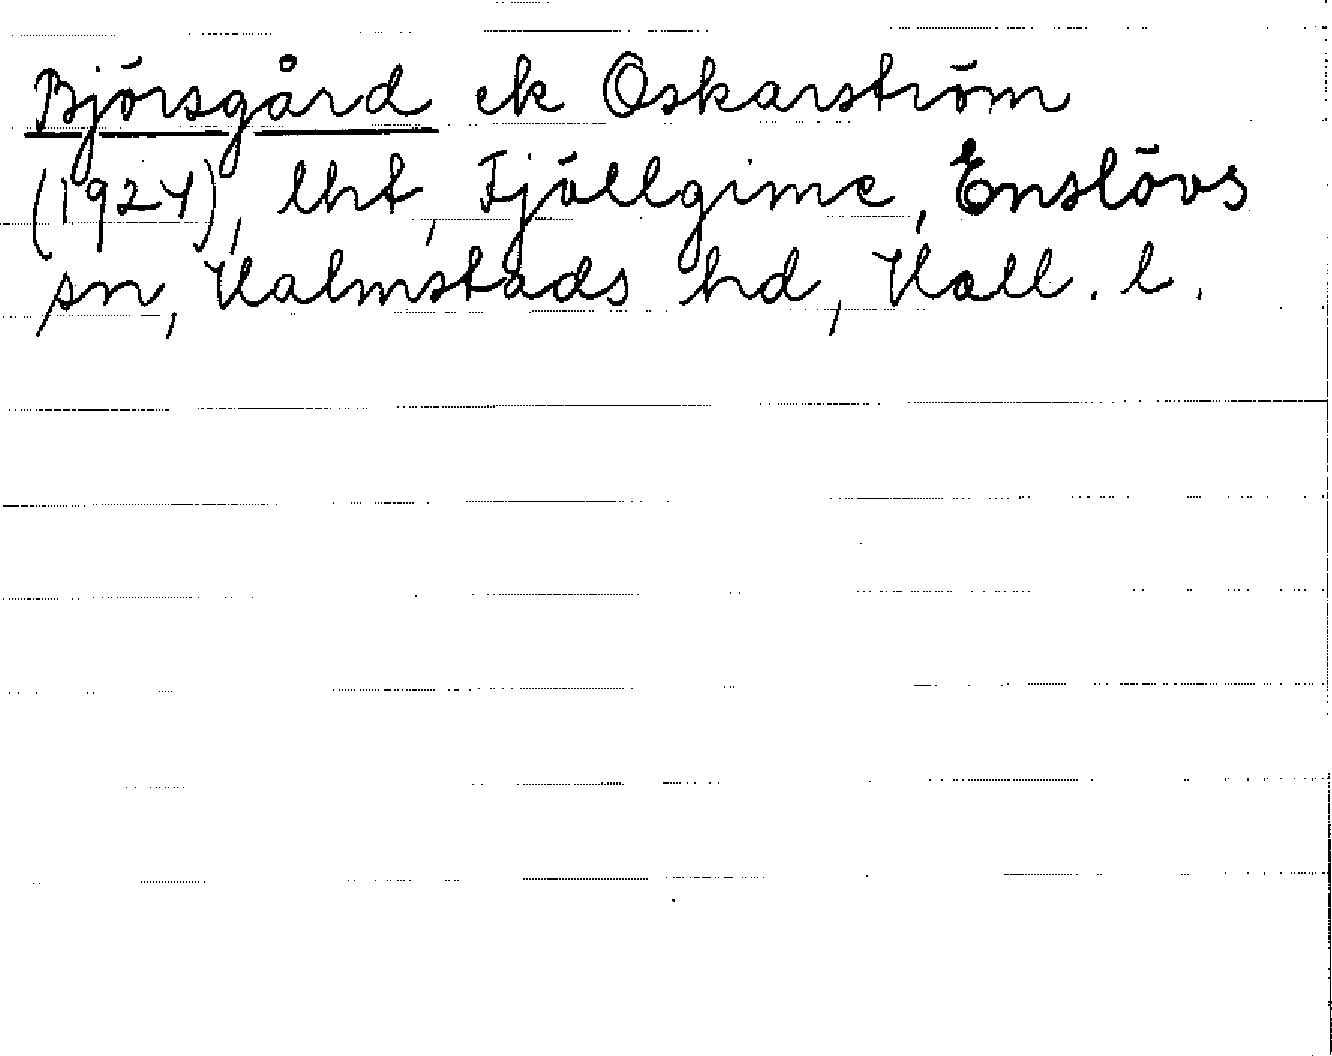 Björsgård ek Oskarström
(1924), lht, Fjällgime, Enslövs
sn, Halmstads hd, Hall. l.